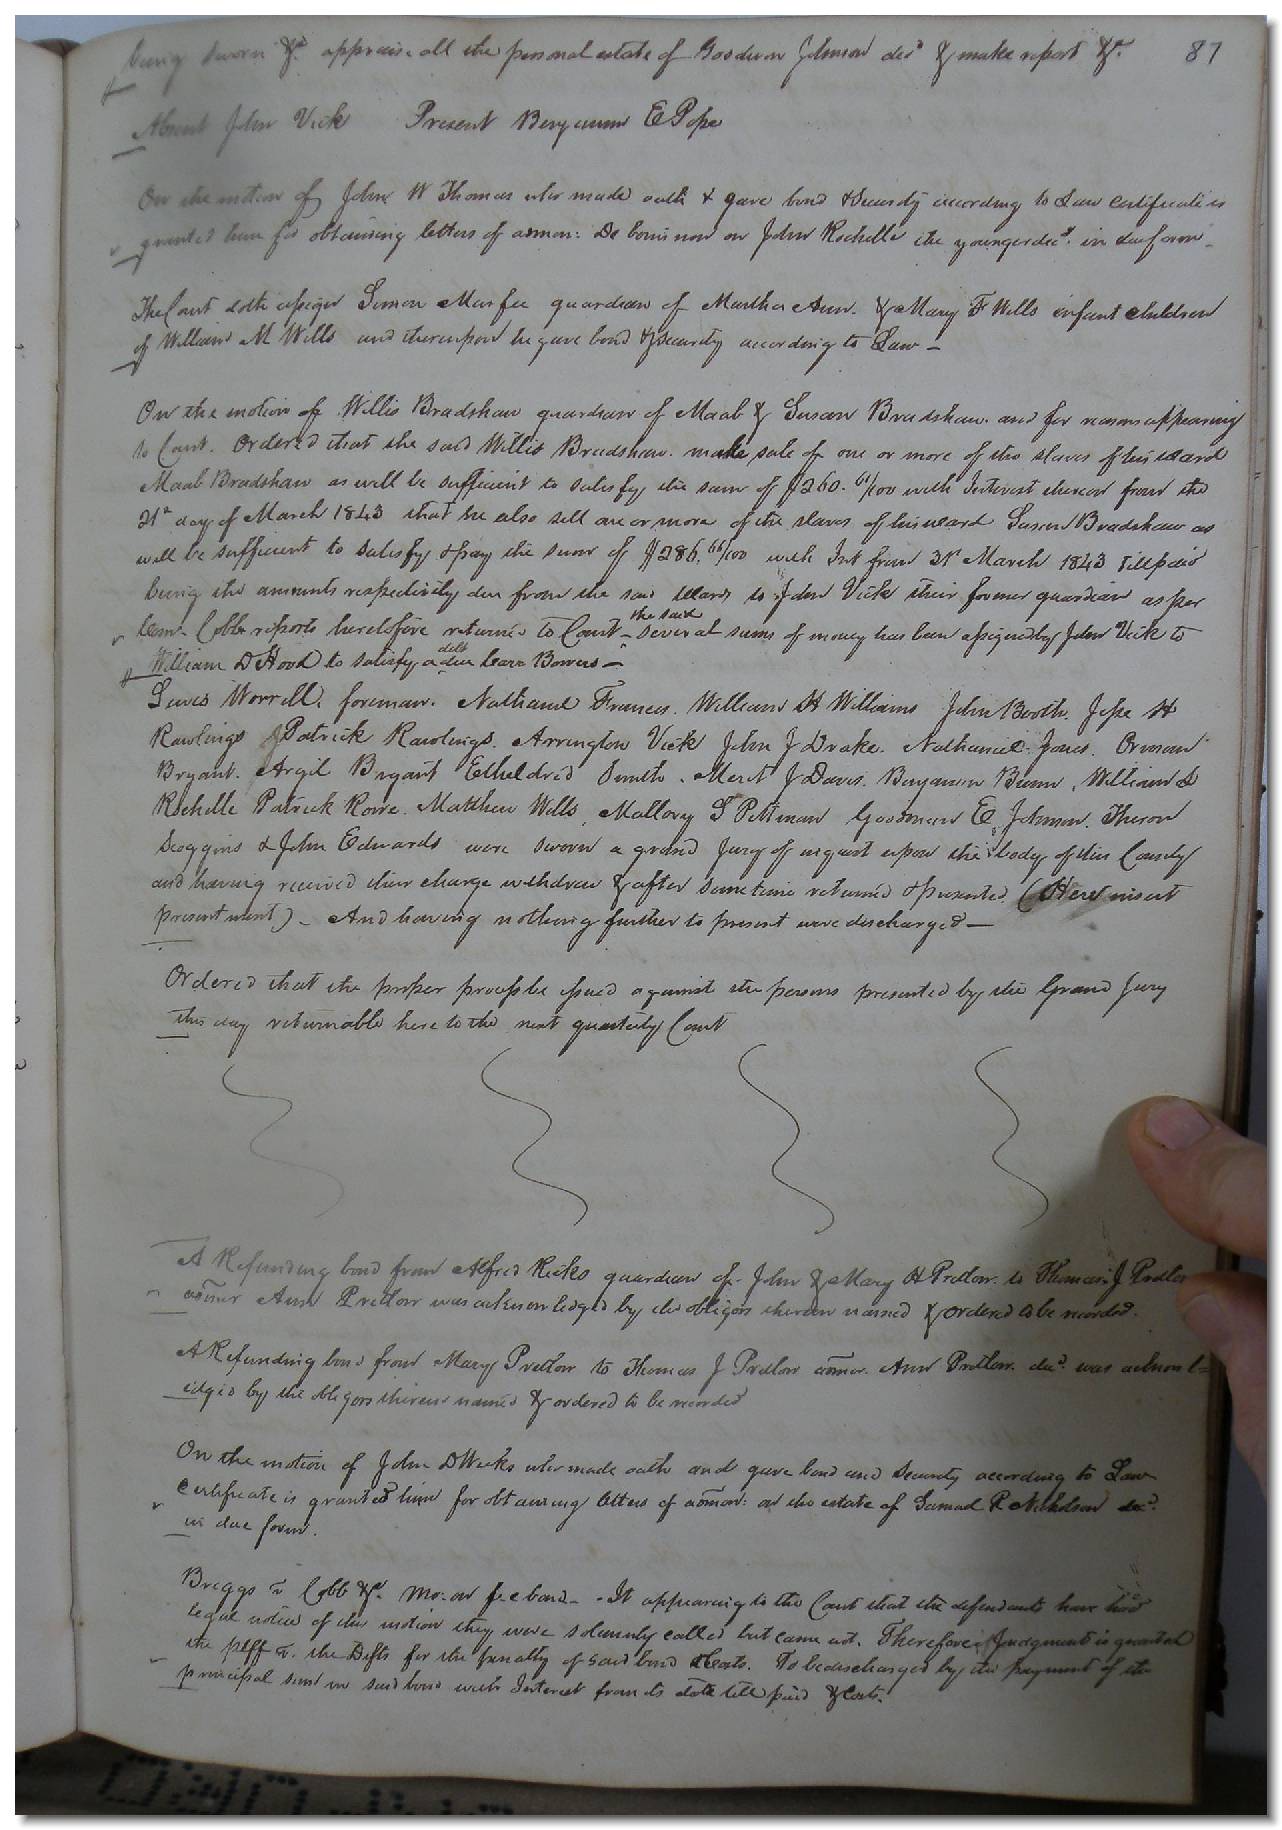 87
being sworn &c. appraise all the personal estate of Goodwin Johnson decd & make report &c.
Absent John Vick Present Benjamin E Pope
On the motion of John W Thomas who made oath & gave bond & Security according to Law certificate is
granted him for obtaining letters of admon: De bonis non on John Rochelle the younger decd. in due form
The Court doth assign Simon Murfee guardian of Martha Ann. & Mary F Wills infant children
of William M Wills and thereupon he gave bond & security according to Law –
On the motion of Willis Bradshaw guardian of Maab & Susan Bradshaw. and for reasons appearing
to Court. Ordered that the said Willis Bradshaw. make sale of one or more of the slaves of his ward
Maab Bradshaw as will be sufficient to satisfy the sum of $260. 61/100 with Interest thereon from the
21st day of March 1843 that he also sell one or more of the slaves of his ward Susan Bradshaw as
will be sufficient to satisfy & pay the sum of $286. 66/100 with Int from 31st March 1843 till paid
being the amounts respectively due from the said wards to John Vick their former guardian as per
Com. Cobbs reports heretofore returned to Court – the said several sums of money has been assigned by John Vick to
William D Hood to satisfy a debt due Carr Bowers –
Lewis Worrell. foreman. Nathaniel Francis. William H Williams John Booth. Jesse H
Rawlings Patrick Rawlings. Arrington Vick John J Drake. Nathaniel Jones. Orman
Bryant. Argil Bryant Etheldred Smith. Merit J Davis. Benjamin Bunn, William L
Rochelle Patrick Rowe. Matthew Wills, Mallory S Pittman Goodman E. Johnson. Theron
Scoggins & John Edwards were sworn a grand Jury of inquest upon the body of this County
and having received their charge withdrew & after sometime returned & presented (Here insert
presentment) – And having nothing further to present were discharged –
Ordered that the proper process be issued against the persons presented by the Grand Jury
this day returnable here to the next quarterly Court
A Refunding bond from Alfred Ricks guardian of John & Mary H Pretlow. to Thomas J Pretlow
admor Ann Pretlow was acknowledged by the obligors therein named & ordered to be recorded.
A Refunding bond from Mary Pretlow to Thomas J Pretlow admor. Ann Pretlow. decd. was acknowl=
edged by the obligors therein named & ordered to be recorded
On the motion of John D Weeks who made oath and gave bond and Security according to Law
certificate is granted him for obtaining letters of admon: on the estate of Samuel R Nicholson decd.
in due form.
Briggs v Cobb &c. Mo: on fee bond – It appearing to the Court that the defendants have had
legal notice of this motion they were solemnly called but came not. Therefore Judgment is granted
the plff v. the Defts for the penalty of said bond & Costs. To be discharged by the payment of the
principal sum in said bond with Interest from its date till paid & Costs.